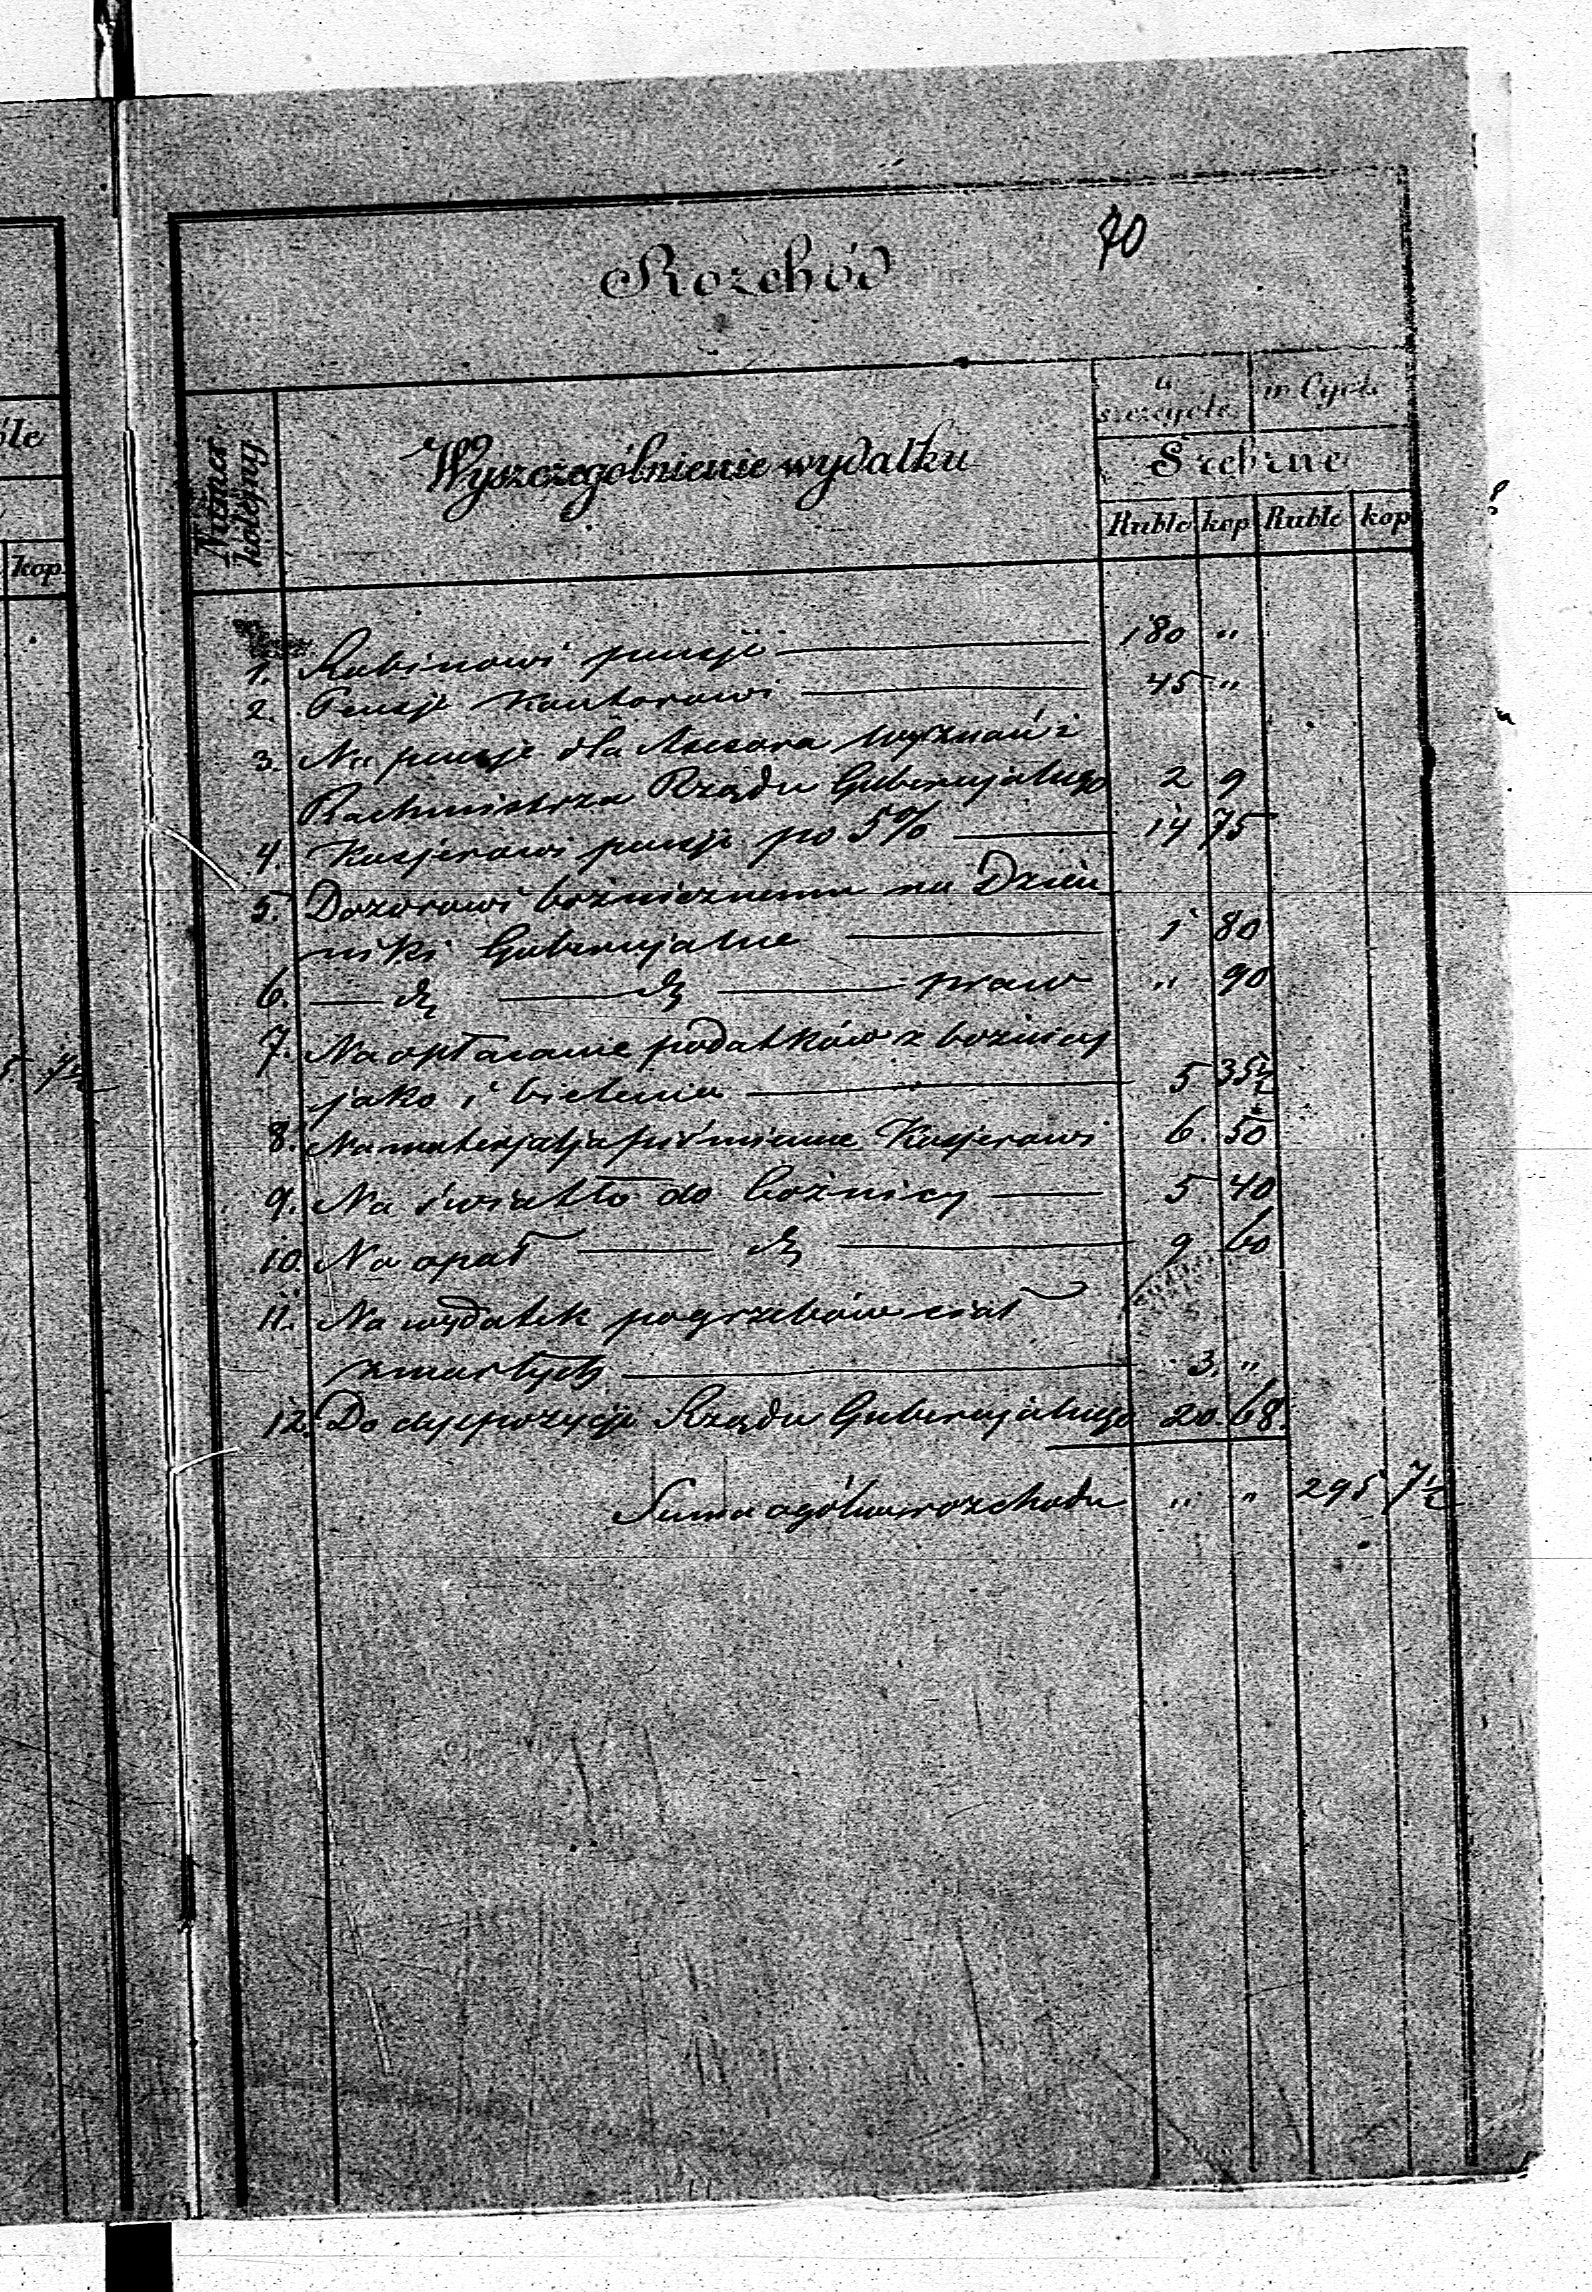 óle
kop
5. 7½
70
Rozchód
Numer kolejny
Wyszczególnienie wydatku
w szczególe
w Ogóle
Srebrne
Ruble kop Ruble kop
1. Rabinowi pensji 180 "
2. Pensji Kantorowi 45 "
3. Na pensje dla Asesora Wyznań i
Rachmistrza Rządu Gubernjalnego 2 9
4. Kasjerowi pensji po 5% 14 75
5. Dozorowi bożnicznemu na Dzien
niki Gubernjalne 1 80
6. — dt — dt — praw " 90
7. Na opłacanie podatków z bożnicy
jako i bielenia 5 35½
8. Na materjalja piśmienne Kasjerowi 6. 50
9. Na światło do bożnicy 5 40
10. Na opał — dt — 9 60
11. Na wydatek pogrzebów ciał
zmarłych 3. "
12. Do dyspozycji Rządu Gubernjalnego 20 68.
Suma ogólna rozchodu " " 295 7½